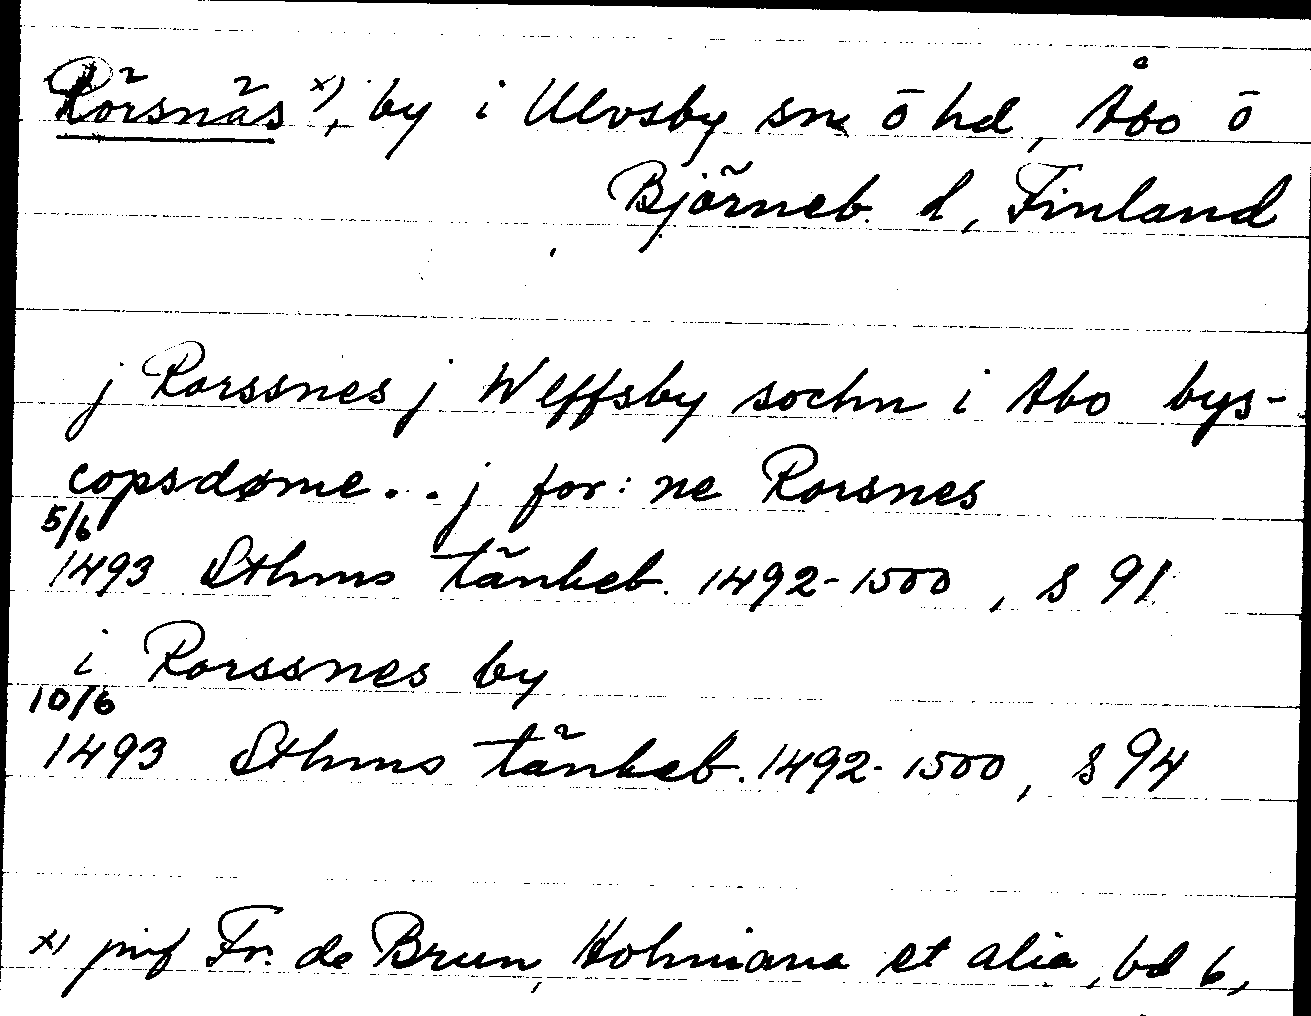 Rörsnäs x), by i Ulvsby sn o hd, Åbo o
Björneb. l, Finland
j Rorssnes j Wlffsby sochn i Abo bys-
copsdøme . . j for: ne Rorsnes
5/6
1493 Sthms tänkeb. 1492-1500, s 91
i Rorssnes by
10/6
1493 Sthms tänkeb. 1492-1500, s 94
x) jmf Fr. de Brun, Holmiana et alia, bd 6,